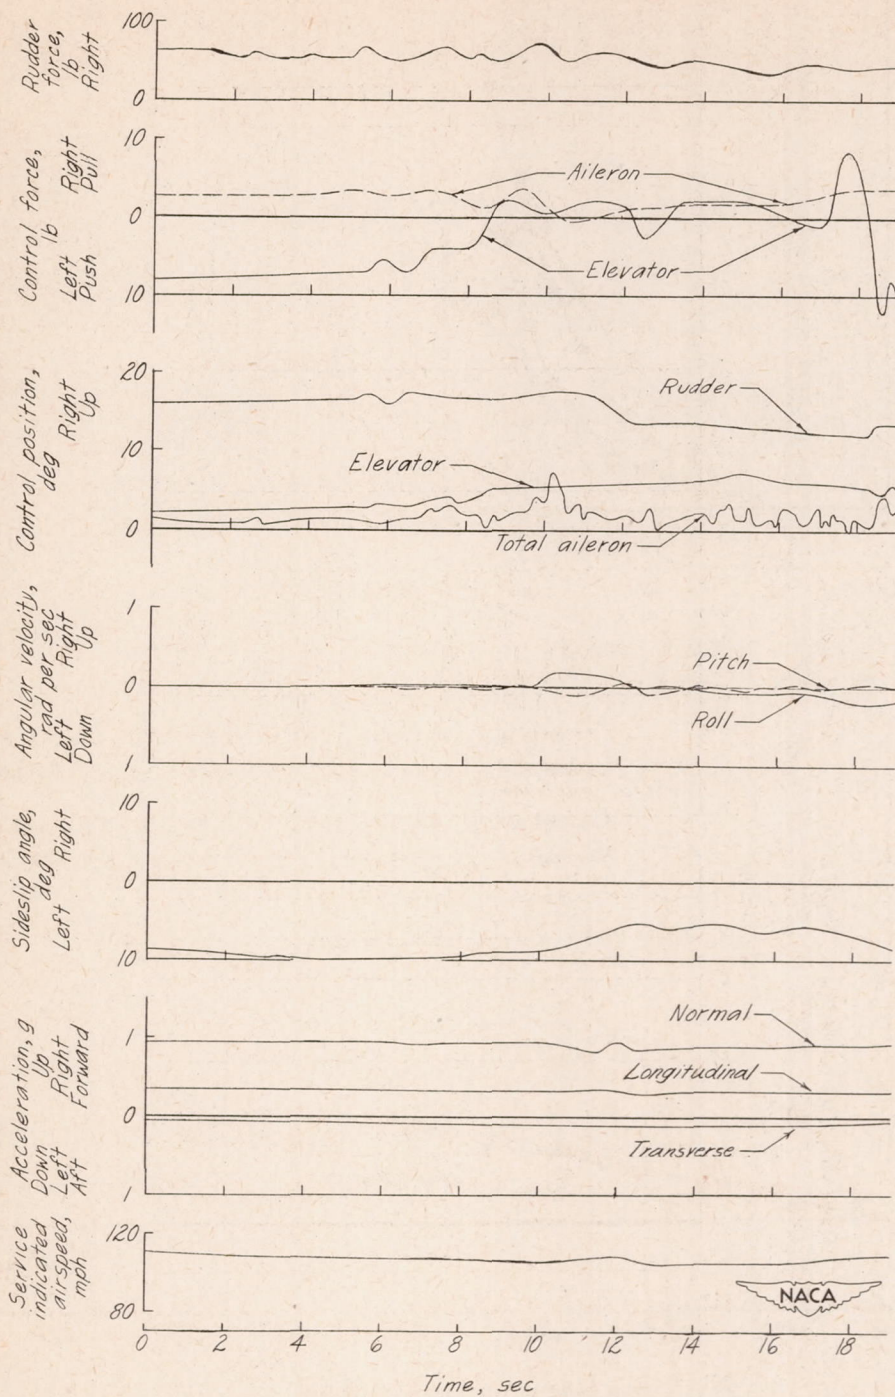 Rudder
force,
lb
Right
100
0
Control force,
lb
Left Right
Push Pull
10
0
10
Aileron
Elevator
Control position,
deg
Right
Up
20
10
0
Rudder
Elevator
Total aileron
Angular velocity,
rad per sec
Left Right
Down Up
1
0
1
Pitch
Roll
Sideslip angle,
deg
Left Right
10
0
10
Acceleration, g
Down Up
Left Right
Aft Forward
1
0
1
Normal
Longitudinal
Transverse
Service
indicated
airspeed,
mph
120
80
NACA
0 2 4 6 8 10 12 14 16 18
Time, sec